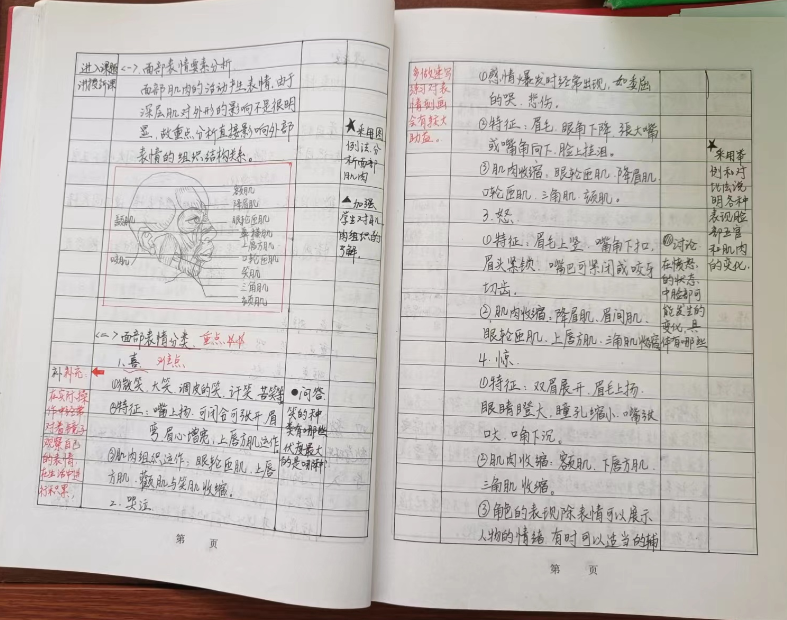 进入课题
讲授新课
<一> 面部表情要素分析
面部肌肉的活动产生表情,由于
深层肌对外形的影响不是很明
显,故重点分析直接影响外部
表情的组织结构关系。
★采用图
例法分
析面部
肌肉
▲加强
学生对肌
肉组织的
了解。
额肌
降眉肌
眼轮匝肌
鼻横肌
上唇方肌
口轮匝肌
笑肌
三角肌
颏肌
颞肌
咬肌
<二> 面部表情分类。重点
1. 喜
补充:
在实际操
对着镜子
观察自己
的表情
在生活中进
①微笑、大笑、调皮的笑、奸笑、苦笑等
②特征:嘴上扬,可闭合可张开,眉
弯,眉心宽,上唇方肌运作
③肌肉组织运作:眼轮匝肌、上唇
方肌、颧肌与笑肌收缩。
2. 哭泣
●问答
笑的种
类有哪些
的是哪种
第 页
多做速写
练习对表
情刻画
会有较大
助益。
①感情爆发时经常出现,如委屈
的哭、悲伤。
②特征:眉毛、眼角下降,张大嘴
或嘴角向下,脸上挂泪。
③肌肉收缩,眼轮匝肌、降眉肌、
口轮匝肌、三角肌、颏肌。
3. 怒
①特征:眉毛上竖、嘴角下扣,
眉头紧锁、嘴巴可紧闭或咬牙
切齿。
②肌肉收缩:降眉肌、眉间肌、
眼轮匝肌、上唇方肌、三角肌收缩
4. 惊
①特征:双眉展开、眉毛上扬、
眼睛瞪大、瞳孔缩小、嘴张
大、嘴角下沉。
②肌肉收缩:额肌、下唇方肌、
三角肌收缩。
③角色的表现除表情可以展示
人物的情绪,有时可以适当的辅
讨论
在愤怒
的状态
中脸部可
能发生的
变化,具
体有哪些
★采用举
例和对
比法说
明各种
表现脸
部五官
和肌肉
的变化.
第 页